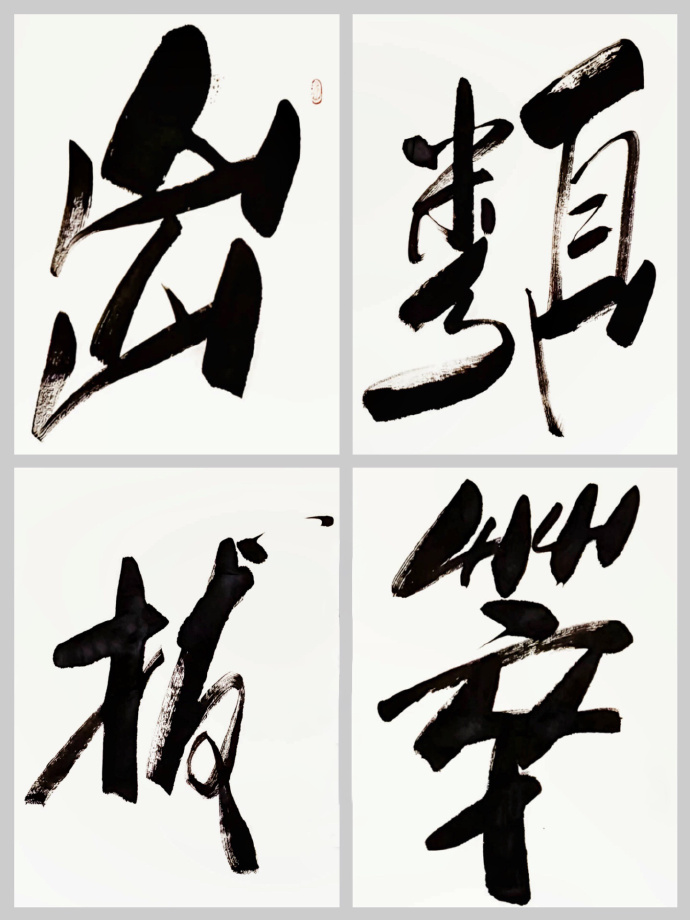 出類
拔萃